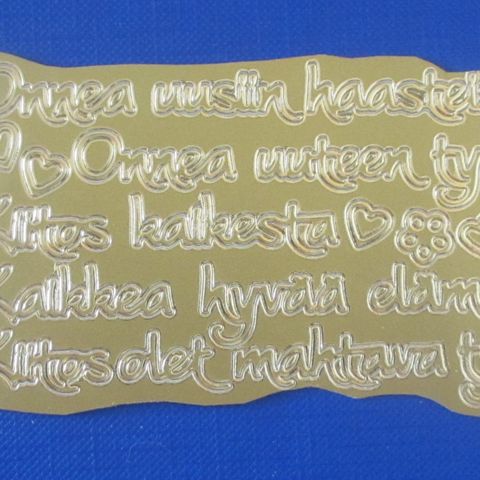 Onnea uusiin haastei
Onnea uuteen ty
Kiitos kaikesta
Kaikkea hyvää eläm
Kiitos olet mahtava ty